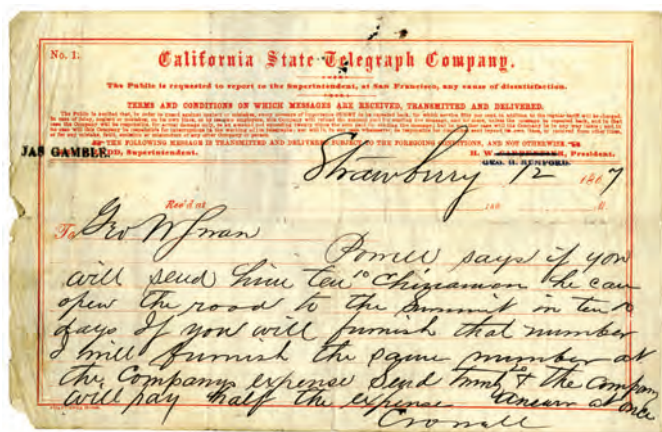 No. 1.
California State Telegraph Company.
The Public is requested to report to the Superintendent, at San Francisco, any cause of dissatisfaction.
TERMS AND CONDITIONS ON WHICH MESSAGES ARE RECEIVED, TRANSMITTED AND DELIVERED.
THE FOLLOWING MESSAGE IS TRANSMITTED AND DELIVERED SUBJECT TO THE FOREGOING CONDITIONS, AND NOT OTHERWISE.
JAS GAMBLE, Superintendent. H. W. President.
GEO. H. MUMFORD.
Strawberry 12 1867
Rec'd at
To Geo W Swan
Powell says if you
will send him ten 10 Chinamon he can
open the road to the Summit in ten 10
days If you will furnish that number
I will furnish the same number at
the Companys expense Send twenty 20 & the company
will pay half the expense answer at once